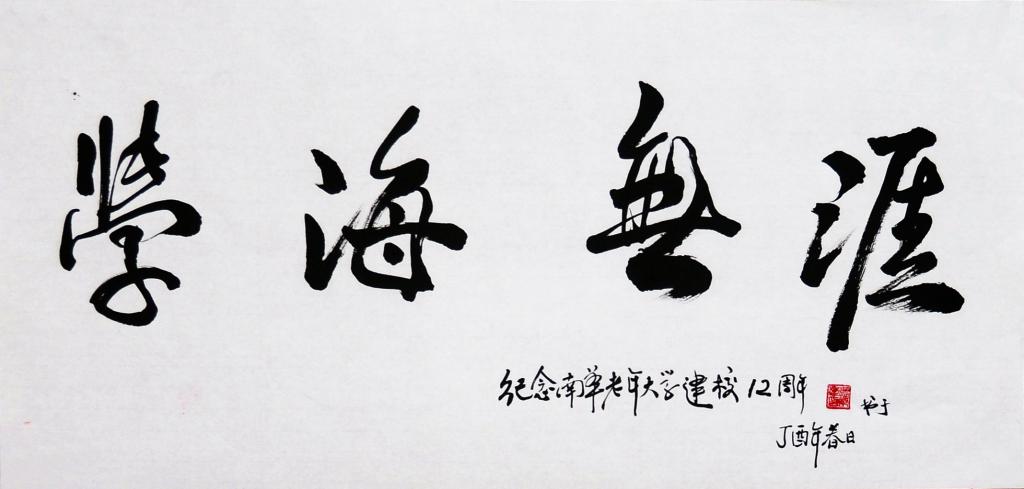 學海無涯
纪念南華老年大学建校12周年 书于
丁酉年春日